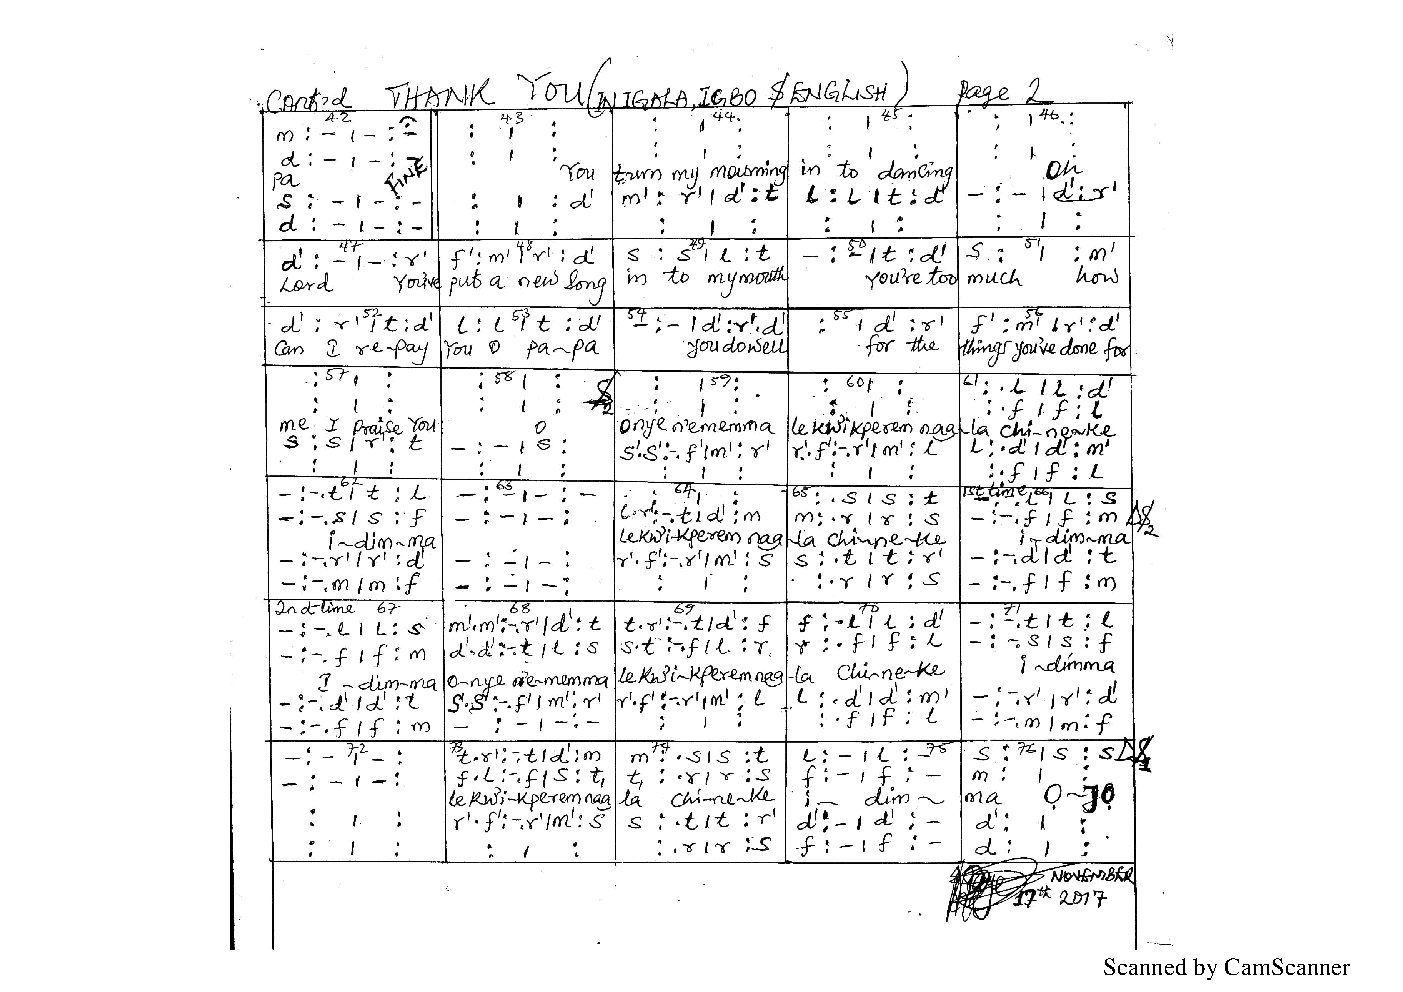 Contd THANK YOU (IN IGALA, IGBO $ ENGLISH) Page 2
42 43 44 45 46
m : - | - : - : | : : | : : | : : | :
d : - | - : : | : Oh
pa FINE You turn my mourning in to dancing
s : - | - : - : | : d' m' : r' | d' : t l : l | t : d' - : - | d' : r'
d : - | - : - : | : : | : : | : : | :
47 48 49 50 51
d' : - | - : r' f' : m' | r' : d' s : s | l : t - : - | t : d' s : | : m'
Lord You've put a new song in to my mouth you're too much how
52 53 54 55 56
d' : r' | t : d' l : l | t : d' - : - | d' : r'. d' : | d' : r' f' : m' | r' : d'
Can I re-pay You O pa-pa you do well for the things you've done for
57 58 59 60 61
: | : : | : : | : : | : : . l | l : d'
: | : : | : S/2 : | : : | : : . f | f : l
me I praise You O onye n'ememma le kwi kperem nag-la chi-ne-ke
s : s | r' : t - : - | s : s'.s' : -. f' | m' : r' r'. f' : -. r' | m' : l l : . d' | d' : m'
: | : : | : : | : : | : : . f | f : l
62 63 64 65 1st time 66
- : -. t | t : l - : - | - : - : | : : . s | s : t - : -. l | l : s
- : -. s | s : f - : - | - : l. r' : -. t | d' : m m : . r | r : s - : -. f | f : m S/2
i-dim-ma le kwi-kperem nag-la chi-ne-ke i-dim-ma
- : -. r' | r' : d' - : - | - : r'. f' : -. r' | m' : s s : . t | t : r' - : -. d' | d' : t
- : -. m | m : f - : - | - : : | : : . r | r : s - : -. f | f : m
2nd time 67 68 69 70 71
- : -. l | l : s m'. m' : -. r' | d' : t t. r' : -. t | d' : f f : . l | l : d' - : -. t | t : l
- : -. f | f : m d'. d' : -. t | l : s s. t : -. f | l : r r : . f | f : l - : -. s | s : f
I-dim-ma o-nye n'e-memma le kwi-kperem nag-la chi-ne-ke i-dimma
- : -. d' | d' : t s'. s' : -. f' | m' : r' r'. f' : -. r' | m' : l l : . d' | d' : m' - : -. r' | r' : d'
- : -. f | f : m - : - | - : - : | : : . f | f : l - : -. m | m : f
72 73 74 75 76
- : - | - : t. r' : -. t | d' : m m : . s | s : t l : - | l : - s : | s : s S/1
- : - | - : f. l : -. f | s : t, t, : . r | r : s f : - | f : - m : | :
le kwi-kperem nag la chi-ne-ke i- dim- ma Ọ-JỌ
: | : r'. f' : -. r' | m' : s s : . t | t : r' d' : - | d' : - d' : | :
: | : : | : : . r | r : s f : - | f : - d : | :
NOVEMBER
17th 2017
Scanned by CamScanner